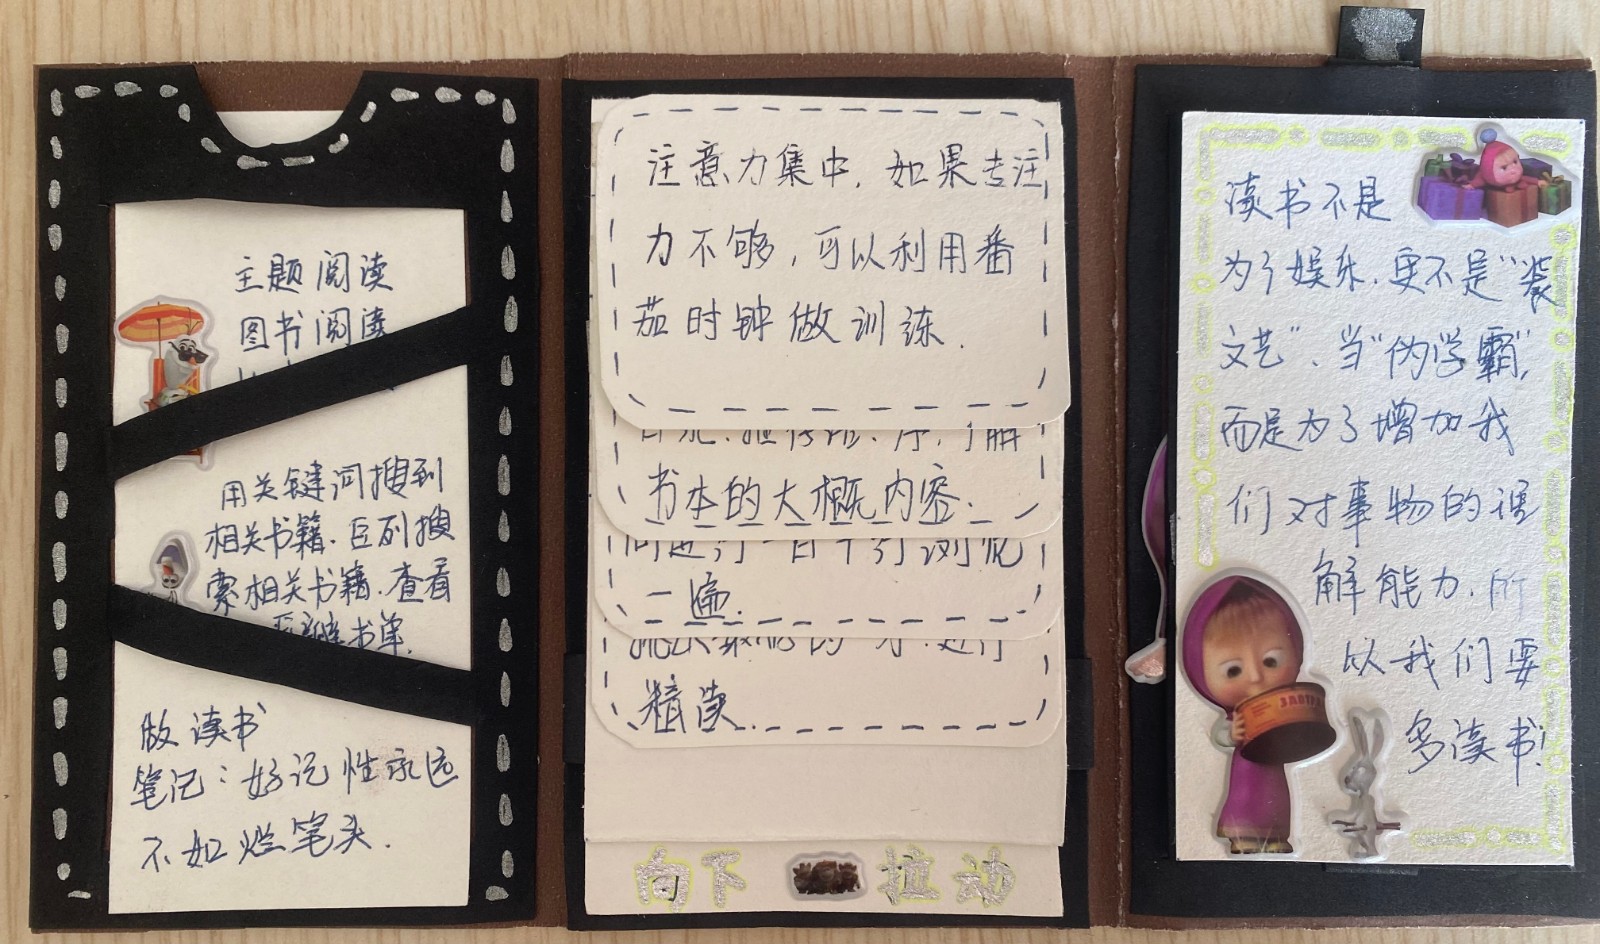 主题阅读
图书阅读
用关键词搜到
相关书籍.巨列搜
索相关书籍.查看
书单.
做读书
笔记:好记性永远
不如烂笔头.
注意力集中.如果专注
力不够,可以利用番
茄时钟做训练.
书本的大概内容.
一遍.
精读.
向下 拉动
读书不是
为了娱乐.更不是“装
文艺”.当“伪学霸”,
而是为了增加我
们对事物的理
解能力.所
以我们要
多读书!
ЗАВТРАК